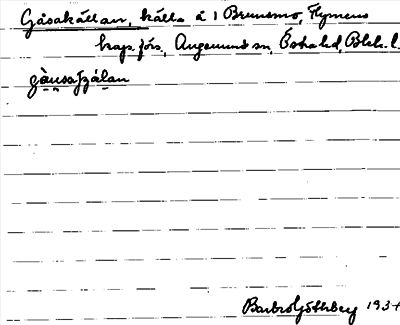 Gåsakällan, källa å 1 Brunsmo, Flymens
kap. förs., Augerums sn, Östra hd, Blek. l.
gåusaçälan
Barbro Göthberg 1934